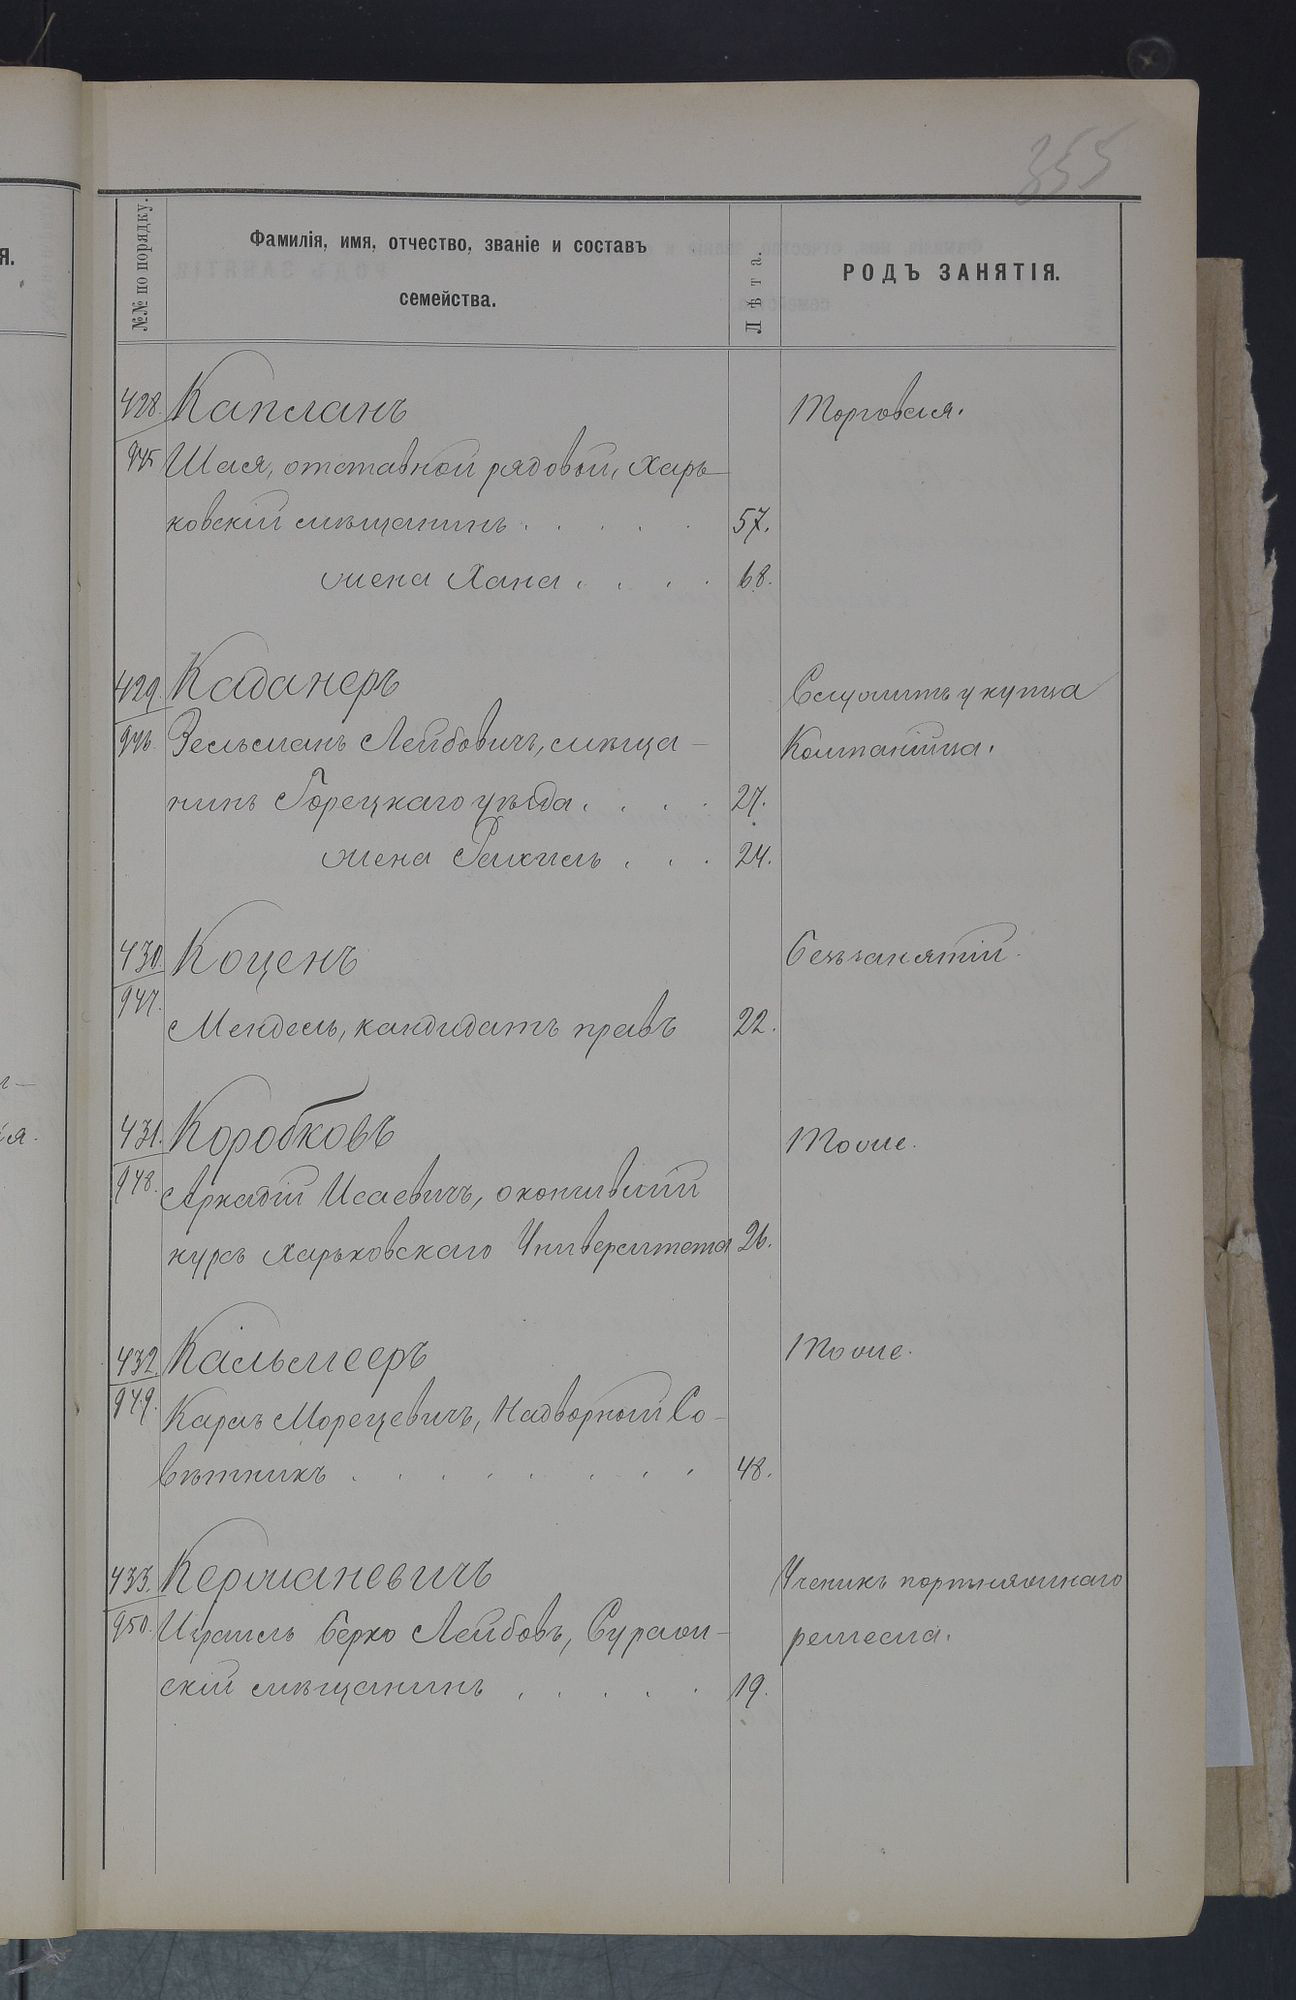 355
№№ по порядку.
Фамилія, имя, отчество, званіе и составъ
семейства.
Лѣта.
РОДЪ ЗАНЯТІЯ.
428. Капланъ Торговля.
945 Шая, отставной рядовой, Харь-
ковскій мѣщанинъ . . . . . 57.
жена Хана . . . . 68.
429. Каданеръ Служитъ у купца
946. Зельманъ Лейбовичъ, мѣща- Компанійца.
нинъ Горецкаго уѣзда . . . . 27.
жена Рахиль . . . 24.
430. Коценъ Безъ занятій.
947. Мендель, кандидатъ правъ 22.
431. Коробковъ Тоже.
948. Аркадій Исаевичъ, окончившій
курсъ Харьковскаго Университета 26.
432. Кальмееръ Тоже.
949. Карлъ Морецевичъ, Надворный Со-
вѣтникъ . . . . . . . . 48.
433. Кермановичъ Ученикъ портняжнаго
950. Израиль Берко Лейбовъ, Сураж- ремесла.
скій мѣщанинъ . . . . . 19.